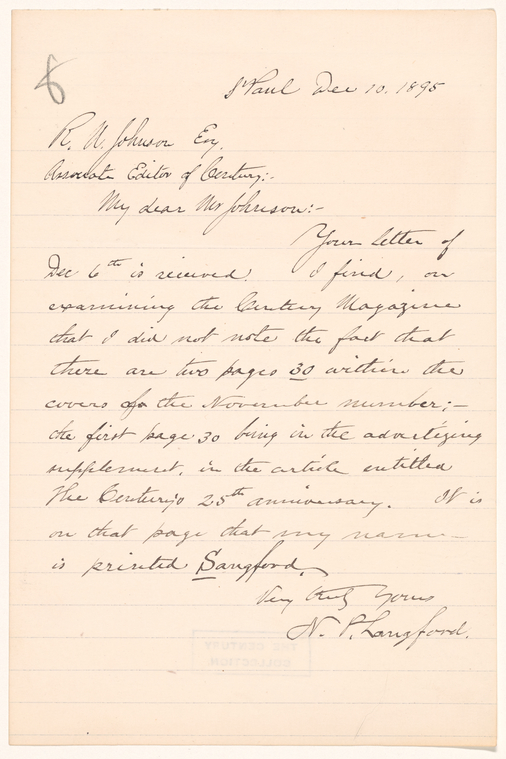 8
St Paul Dec 10. 1895
R. U. Johnson Esq.
Associate Editor of Century:-
My dear Mr Johnson:-
Your letter of
Dec 6th is received. I find, on
examining the Century Magazine
that I did not note the fact that
there are two pages 30 within the
covers of the November number;-
the first page 30 being in the advertizing
supplement, in the article entitled
The Century's 25th anniversary. It is
on that page that my name
is printed Sangford.
Very truly Yours
N. P. Langford.
THE CENTURY
COLLECTION